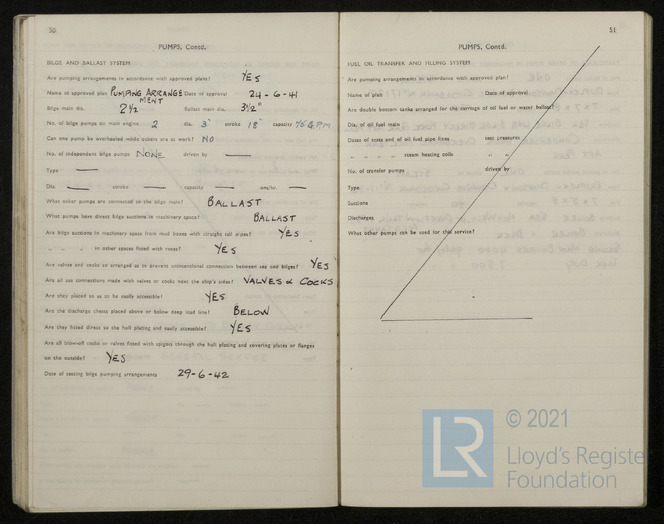 50
PUMPS, Contd.
BILGE AND BALLAST SYSTEM
Are pumping arrangements in accordance with approved plans? YES
Name of approved plan PUMPING ARRANGEMENT Date of approval 24-6-41
Bilge main dia. 2½ Ballast main dia. 3½"
No. of bilge pumps on main engine 2 dia. 3" stroke 18" capacity
Can one pump be overhauled while others are at work? NO
No. of independent bilge pumps NONE driven by —
Type —
Dia. — stroke — capacity — —
What other pumps are connected to the main bilge? BALLAST
What pumps have direct bilge suctions in machinery space? BALLAST
Are bilge suctions in machinery space from mud boxes with straight tail pipes? YES
" " " in other spaces fitted with roses? YES
Are valves and cocks so arranged as to prevent unintentional connection between sea and bilges? YES
Are all sea connections made with valves or cocks next the ship's sides? VALVES & COCKS
Are they placed so as to be easily accessible? YES
Are the discharge chests placed above or below deep load line? BELOW
Are they fitted direct to the hull plating and easily accessible? YES
Are all blow-off cocks or valves fitted with spigots through the hull plating and covering plates or flanges
on the outside? YES
Date of testing bilge pumping arrangements 29-6-42
51
PUMPS, Contd.
FUEL OIL TRANSFER AND FILLING SYSTEM
Are pumping arrangements in accordance with approved plan?
Name of plan Date of approval
Are double bottom tanks arranged for the carriage of oil fuel or water ballast?
Dia. of oil fuel main
Dates of tests and of oil fuel pipe lines test pressures
" " " " steam heating coils " "
No. of transfer pumps driven by
Type
Suctions
Discharges
What other pumps can be used for this service?
© 2021
LR
Lloyd's Register
Foundation